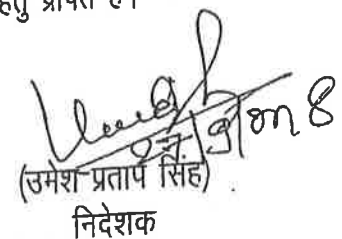 हेतु प्रेषित है।
(उमेश प्रताप सिंह)
निदेशक